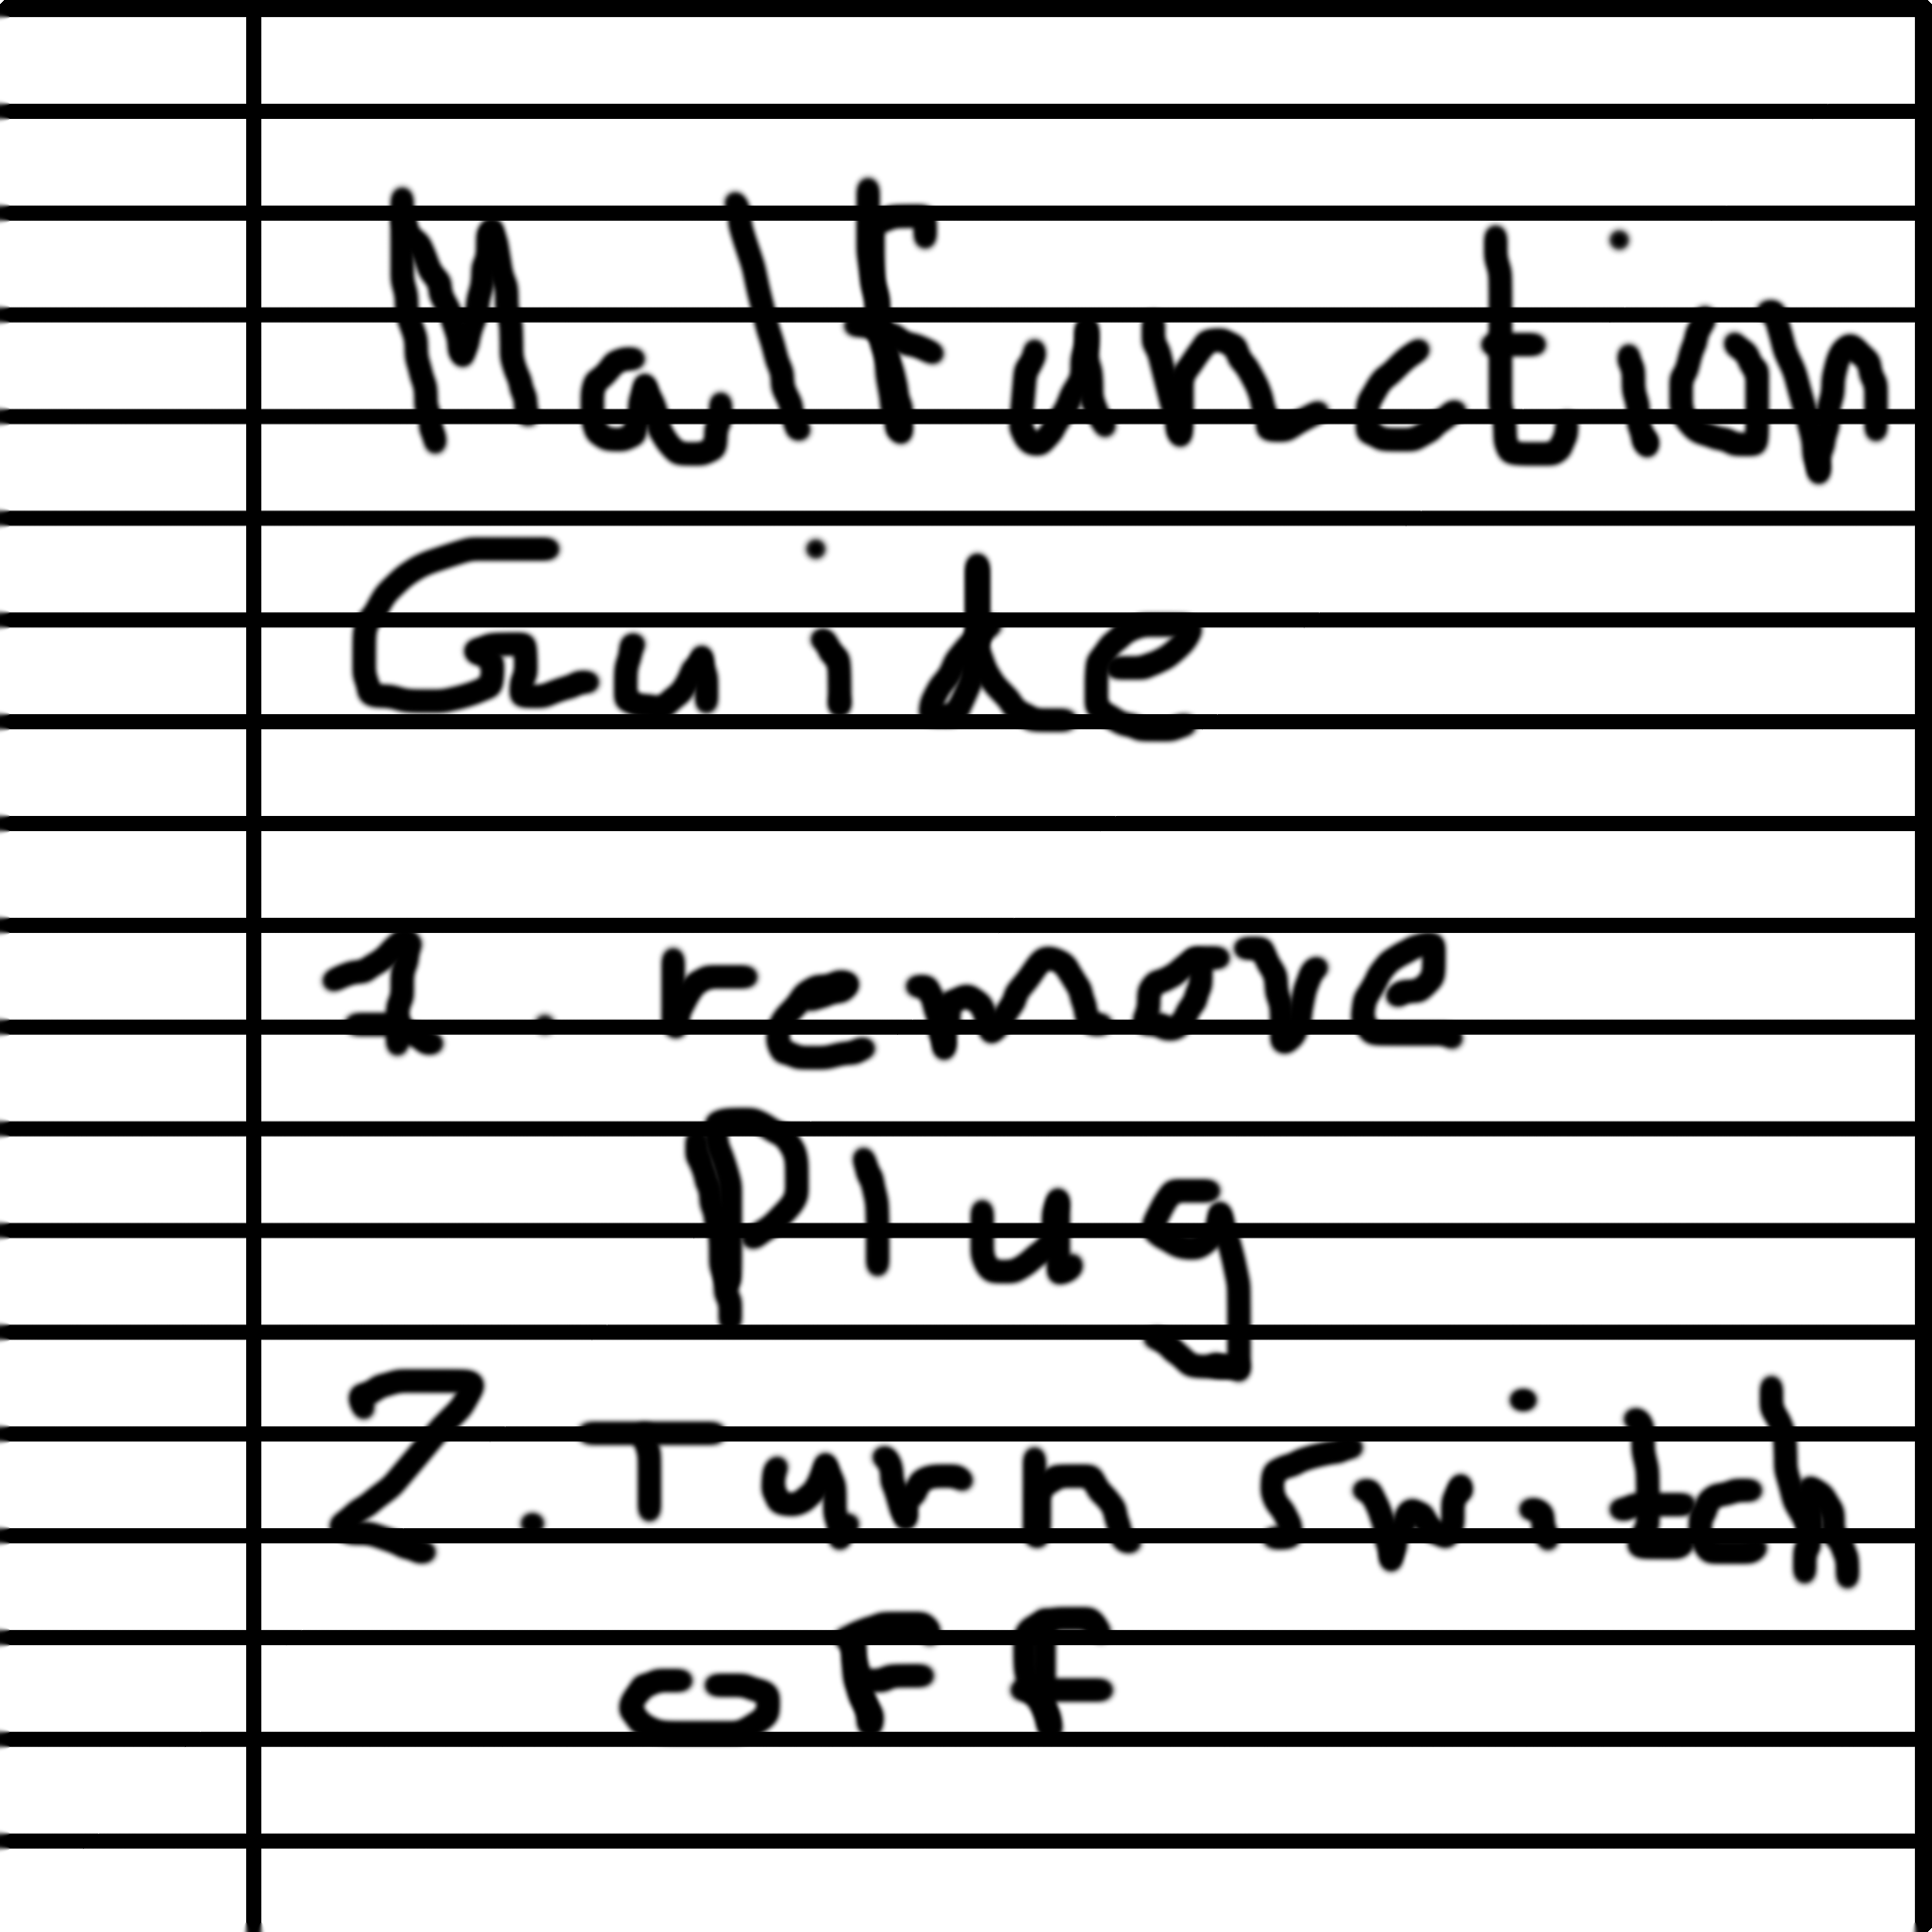 Malfunction
Guide
1. remove
Plug
2. Turn switch
off